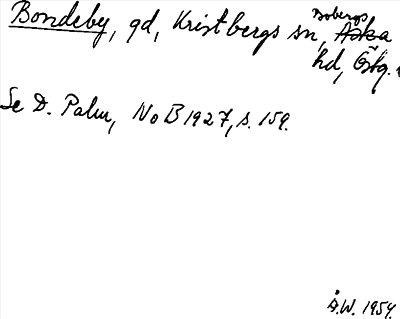 Bobergs
Bondeby, gd, Kristbergs sn, Aska
hd, Östg.
Se D. Palm, NoB 1927, s. 159.
Å.W. 1954.